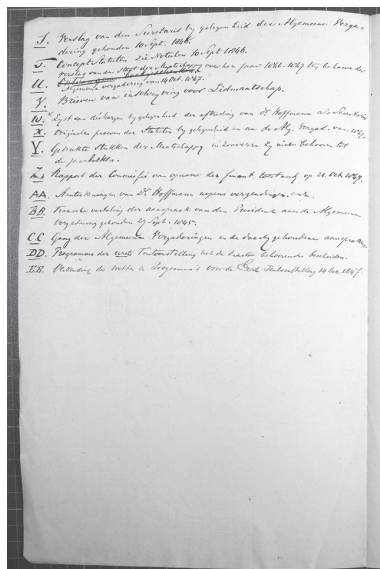 S. Verslag van den Secretaris by gelegenheid der Algemeene Verga-
dering gehouden 10 Sept. 1846.
T. Concept Statuten zie Notulen 10 Sept 1846.
verslag van den staat der Maatschappy over het jaar 1846-1847
U. Algemeene vergadering van 14 Oct. 1847.
V. Brieven van inschryving voor Lidmaatschap.
W. Lyst en discharge by gelegenheid der aftreding van Dr Hoffmann als Secretaris
X. Originele der Statuten by gelegenheid en na de Alg. Vergad. van 1847.
Y. Gedrukte Stukken der Maatschappy in zooverre zy niet behooren tot
de
Z. Rapport der Commissie van opname der finantieele toestand op 21 Oct. 1847.
AA. Aanteekeningen van Dr Hoffmann nopens vergaderingen enz.
BB. Fransche vertaling der aanspraak van den President aan de Algemeene
vergadering gehouden 29 Sept. 1845.
CC. Gang der Algemeene Vergaderingen en de daarby gehoudene aanspraken.
DD. Programma der eerste Tentoonstelling met de daartoe behoorende bescheiden.
EE. der wetten & Programma's voor de Eerste Tentoonstelling 14 1847.